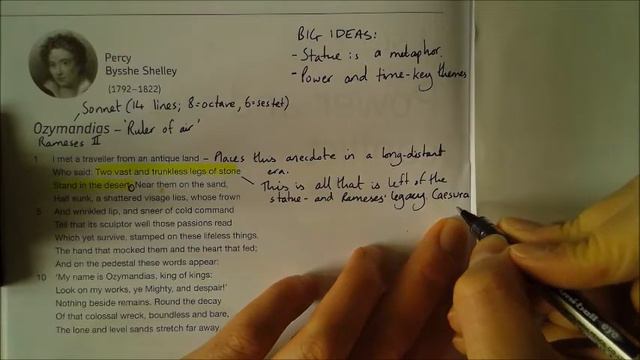 BIG IDEAS:
- Statue is a metaphor.
- Power and time - key themes
Percy
Bysshe Shelley
(1792–1822)
Sonnet (14 lines; 8=octave, 6=sestet)
Ozymandias - 'Ruler of air'
Rameses II
1 I met a traveller from an antique land - Places this anecdote in a long-distant era.
Who said: Two vast and trunkless legs of stone
Stand in the desert. Near them on the sand,
This is all that is left of the
statue - and Rameses' legacy. Caesura
Half sunk, a shattered visage lies, whose frown
5 And wrinkled lip, and sneer of cold command
Tell that its sculptor well those passions read
Which yet survive, stamped on these lifeless things,
The hand that mocked them and the heart that fed;
And on the pedestal these words appear:
10 'My name is Ozymandias, king of kings:
Look on my works, ye Mighty, and despair!'
Nothing beside remains. Round the decay
Of that colossal wreck, boundless and bare,
The lone and level sands stretch far away.